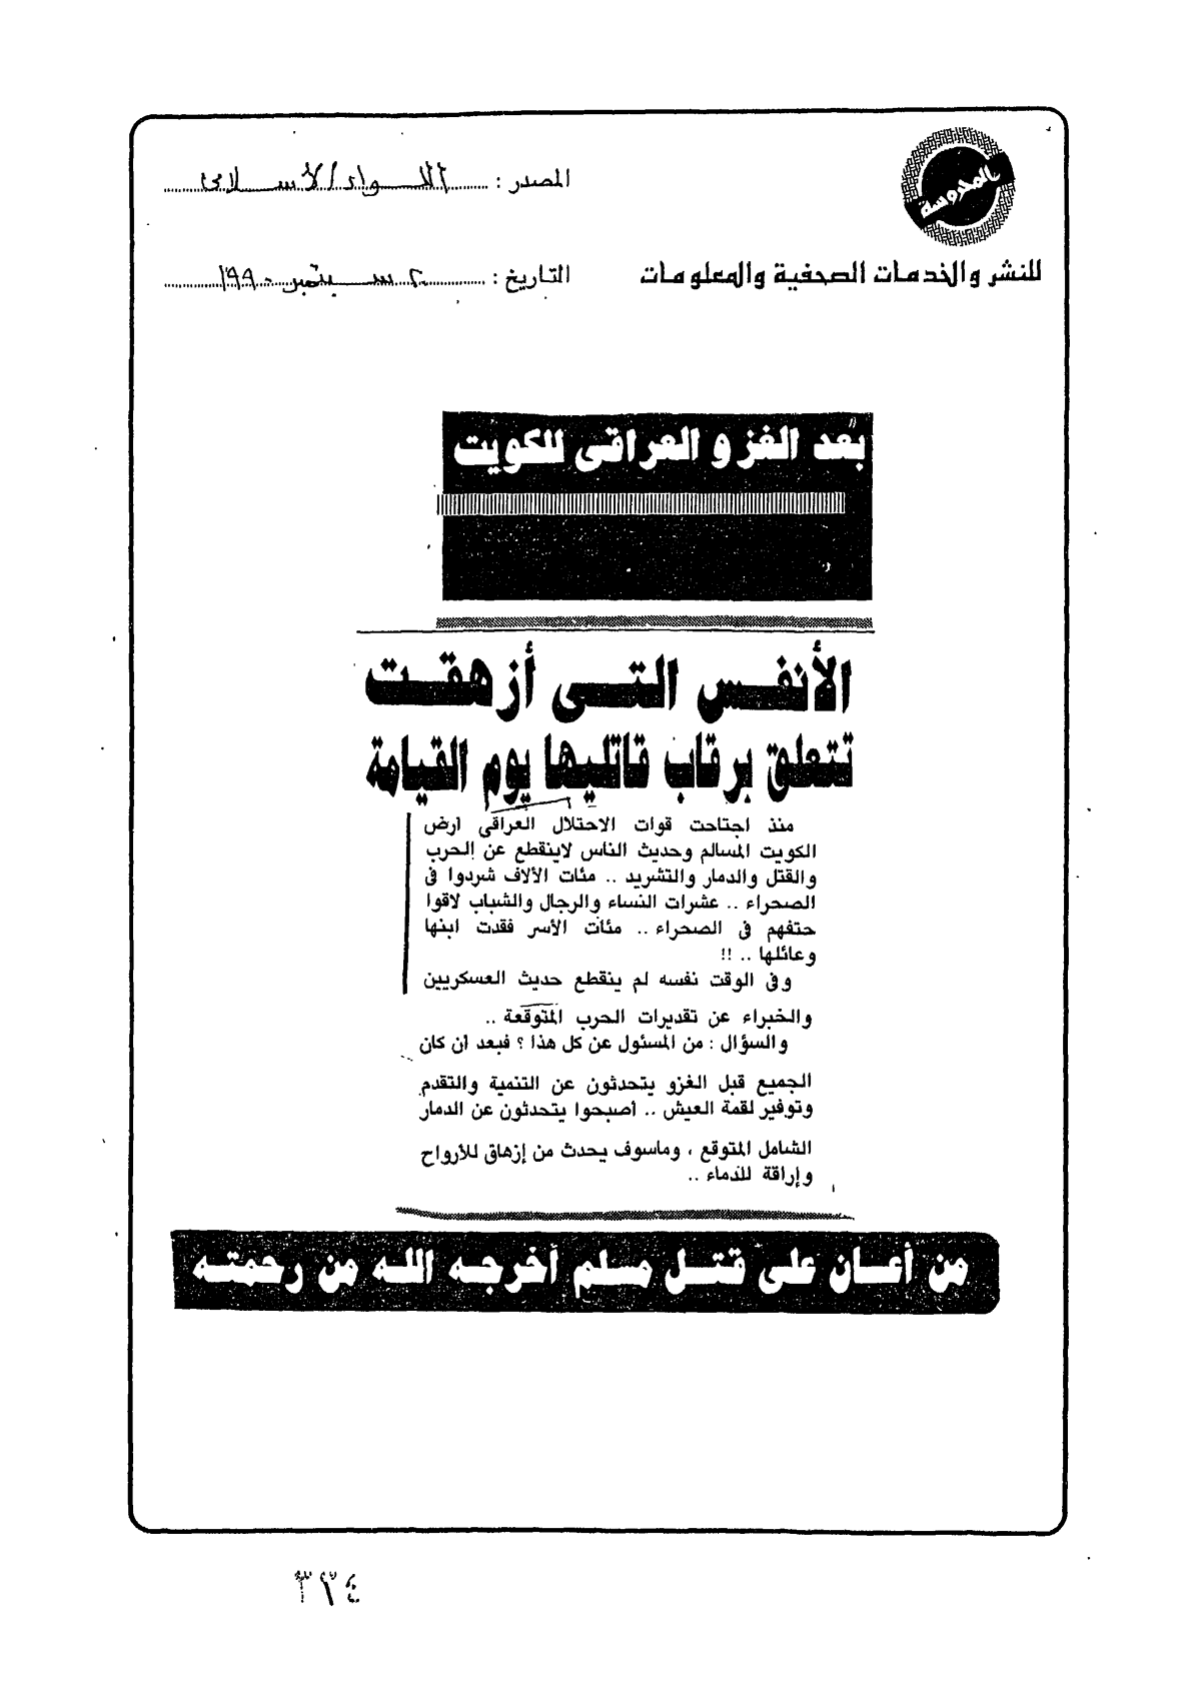 المحروسة
للنشر والخدمات الصحفية والمعلومات
المصدر : اللواء الاسلامى
التاريخ : ٢٠ سبتمبر ١٩٩٠
بعد الغزو العراقى للكويت
الأنفس التى أزهقت
تتعلق برقاب قاتليها يوم القيامة
منذ اجتاحت قوات الاحتلال العراقى أرض
الكويت المسالم وحديث الناس لاينقطع عن الحرب
والقتل والدمار والتشريد .. مئات الألاف شردوا فى
الصحراء .. عشرات النساء والرجال والشباب لاقوا
حتفهم فى الصحراء .. مئات الأسر فقدت ابنها
وعائلها .. !!
وفى الوقت نفسه لم ينقطع حديث العسكريين
والخبراء عن تقديرات الحرب المتوقعة ..
والسؤال : من المسئول عن كل هذا ؟ فبعد أن كان
الجميع قبل الغزو يتحدثون عن التنمية والتقدم
وتوفير لقمة العيش .. أصبحوا يتحدثون عن الدمار
الشامل المتوقع ، وماسوف يحدث من إزهاق للأرواح
وإراقة للدماء ..
من أعان على قتل مسلم أخرجه الله من رحمته
٣٢٤